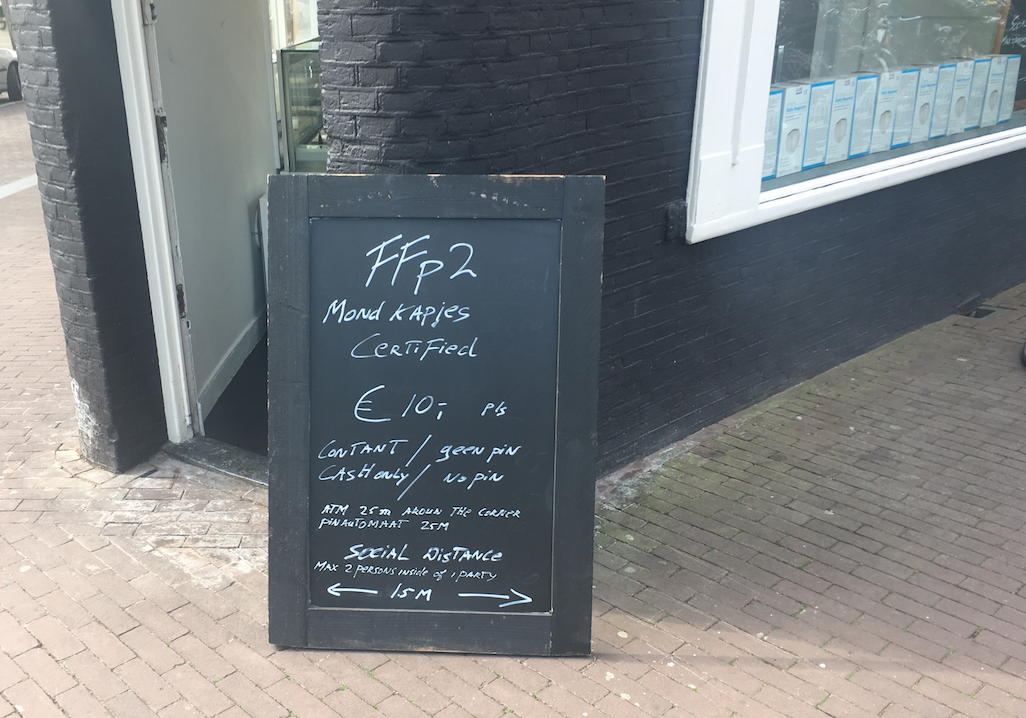 FFp2
Mond KAPjes
CERTiFied
€ 10,- p/s
CONTANT / geen pin
CASH only / No pin
ATM 25m AROUN THE CORNER
PINAUTOMAAT 25M
SOCiAL DiSTANCE
MAX 2 persons inside of 1 PARTY
← 1.5 M →